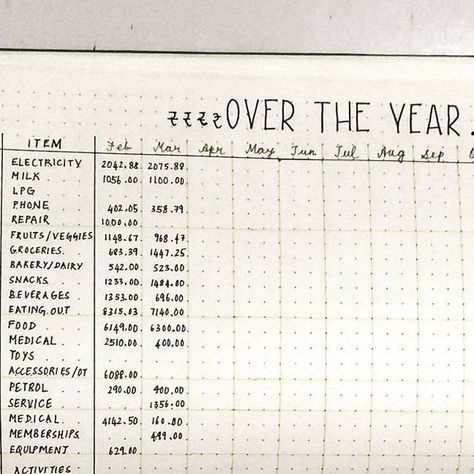 OVER THE YEAR
ITEM Feb Mar Apr May Jun Jul Aug Sep
ELECTRICITY 2042.88 2075.88
MILK 1056.00 1100.00
LPG
PHONE 402.05 358.79
REPAIR 1000.00
FRUITS/VEGGIES 1148.67 968.47
GROCERIES 683.39 1447.25
BAKERY/DAIRY 542.00 523.00
SNACKS 1233.00 1484.00
BEVERAGES 1353.00 696.00
EATING OUT 8315.03 7140.00
FOOD 6149.00 6300.00
MEDICAL 2510.00 400.00
TOYS
ACCESSORIES/OT 6088.00
PETROL 290.00 400.00
SERVICE 1356.00
MEDICAL 4142.50 160.80
MEMBERSHIPS 499.00
EQUIPMENT 629.00
ACTIVITIES